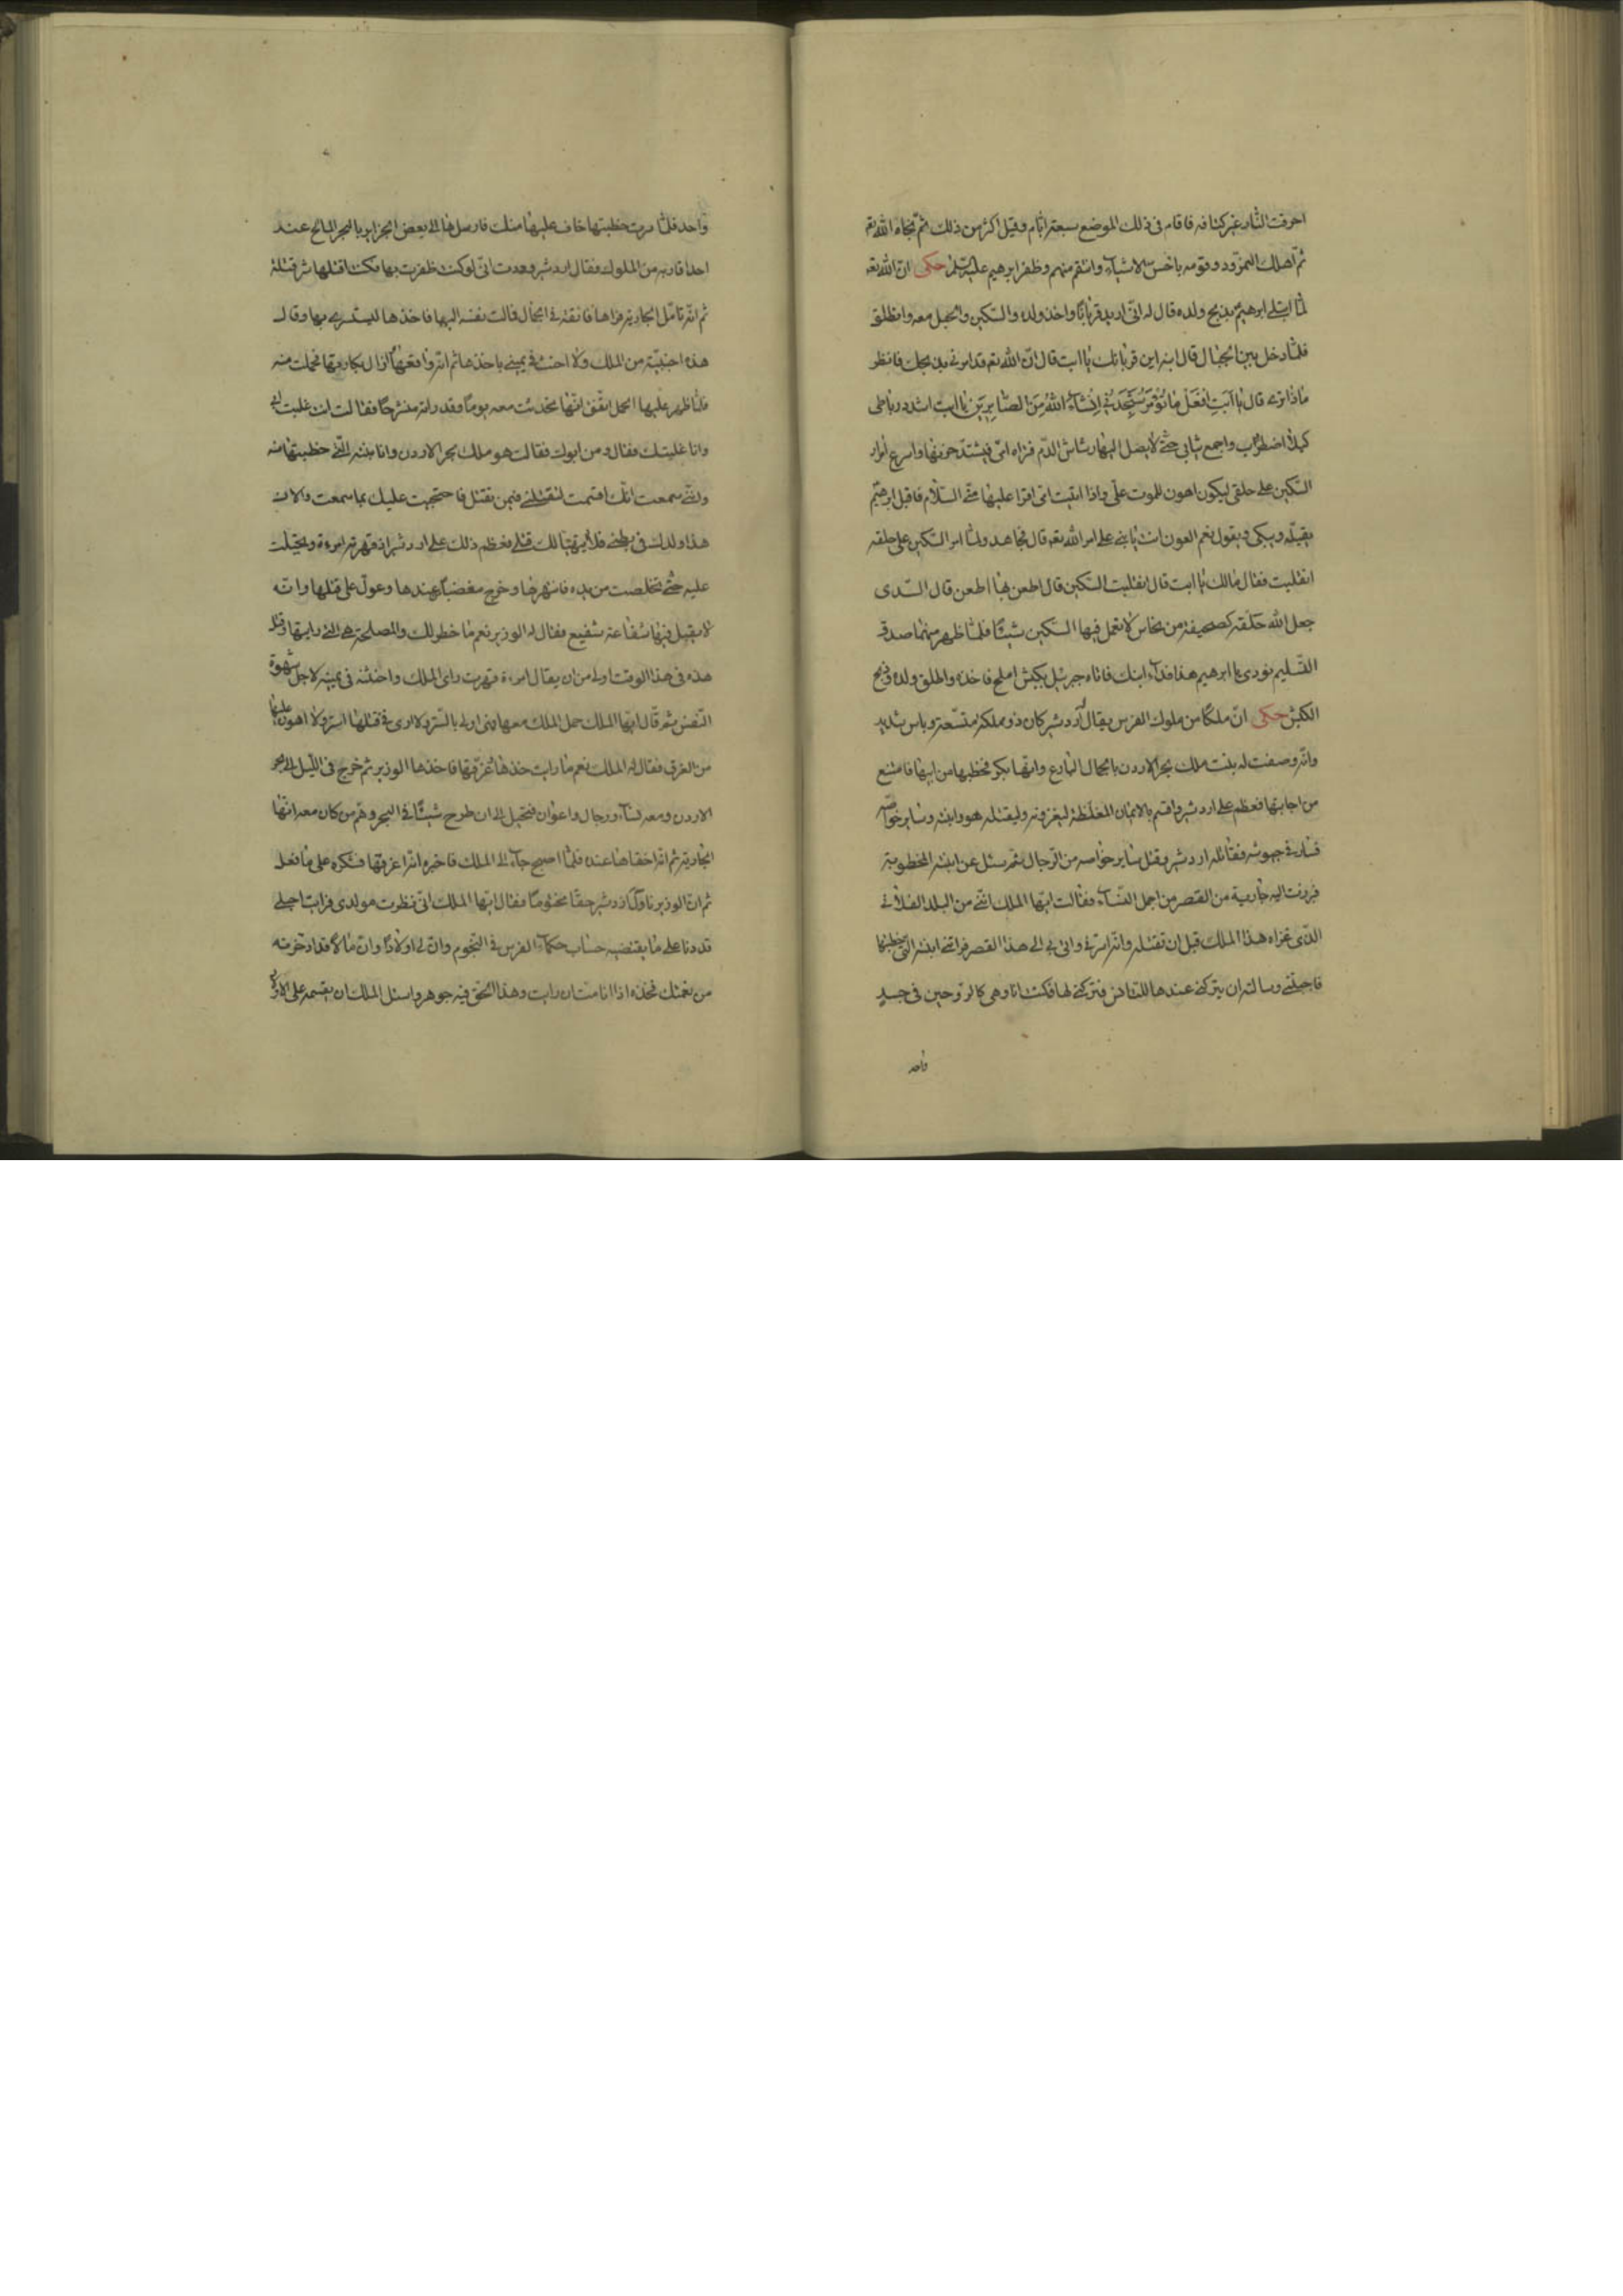 احرقت النار غير كتافه فاقام فى ذلك الموضع سبعة ايام وقيل اكثر من ذلك ثم نجاه الله تع
ثم اهلك النمرود وقومه باخس الاشياء وانتقم منهم وظفر ابرهيم عليه السلم حكى ان الله تع
لما ابتلى ابرهيم بذبح ولده قال له انى اريد قربانا واخذ ولده والسكين والحبل معه وانطلق
فلما دخل بين الجبال قال ابنه اين قربانك يا ابت قال ان الله تع قد امرنى بذبحك فانظر
ماذا ترى قال يا ابت افعل ما تؤمر ستجدنى انشاء الله من الصابرين يا ابت اشدد رباطى
كيلا اضطراب واجمع ثيابى حتى لا يصل اليها رشاش الدم فتراه امى فيشتد حزنها واسرع امرار
السكين على حلقى ليكون اهون للموت على واذا اتيت امى اقرا عليها منى السلام فاقبل ابرهيم
يقبله ويبكى ويقول نعم العون انت يا بنى على امر الله تع قال مجاهد ولما امر السكين على حلقه
انقلبت فقال مالك يا ابت قال انقلبت السكين قال اطعن بها اطعن قال السدى
جعل الله حلقه كصحيفة من نحاس لا تعمل فيها السكين شيئا فلما ظهر منهما صدق
التسليم نودى يا ابرهيم هذا فداء ابنك فاتاه جبرئيل بكبش املح فاخذه واطلق ولده وذبح
الكبش حكى ان ملكا من ملوك الفرس يقال اردشير كان ذو مملكة متسعة وباس شديد
وانه وصفت له بنت ملك بحر الاردن بالجمال البارع وانها بكر فخطبها من ابيها فامتنع
من اجابتها فعظم على اردشير واقسم بالايمان المغلظة ليغزونه وليقتله هو وابنته وساير خواصه
فسار فى جيوشه فقاتله اردشير وقتل ساير خواصه من الرجال ثم سئل عن ابنته المخطوبة
فبرزت اليه جارية من القصر من اجمل النساء فقالت ايها الملك اننى من البلد الفلانى
الذى غزاه هذا الملك قبل ان تقتله وانه اسرنى واتى بى الى هذا القصر فراتنى ابنته التى خطبتها
فاحبتنى وسالته ان يتركنى عندها للتانس فتركنى لها فكنت انا وهى كالروحين فى جسد
واحد
واحد فلما مرت خطبتها خاف عليها منك فارسلها الى بعض الجزاير بالبحر المالح عند
احد اقاربه من الملوك فقال اردشير وددت انى لو كنت ظفرت بها فكنت اقتلها شر قتلة
ثم انه تامل الجارية فراها فائقة فى الجمال فمالت نفسه اليها فاخذها ليستسرى بها وقال
هذه اجنبية من الملك ولا احنث فى يمينى باخذها ثم انه واقعها وازال بكارتها فحملت منه
فلما ظهر عليها الحمل اتفق انها تحدثت معه يوما وقد راته منشرحا فقالت انت غلبت ابى
وانا غلبتك فقال ومن ابوك فقالت هو ملك بحر الاردن وانا بنته التى خطبتها منه
وانى سمعت انك اقسمت لتقتلنى فيمن تقتل فاحتجبت عليك بما سمعت والان
هذا ولدك فى بطنى فلا يتهيا لك قتلى فعظم ذلك على اردشير اذ قهرته امرءة وتحيلت
عليه حتى تخلصت من يده فانتهرها وخرج مغضبا من عندها وعول على قتلها وانه
لا يقبل فيها شفاعة شفيع فقال له الوزير نعم ما خطر لك والمصلحة هى التى رايتها وقتل
هذه فى هذا الوقت اولى من ان يقال امرءة قهرت راى الملك واحنثته فى يمينه لاجل شهوة
النفس ثم قال ايها الملك حمل الملك معها وهى اولى بالستر ولا ارى فى قتلها استر ولا اهون عليها
من الغرق فقال له الملك نعم ما رايت خذها غرقها فاخذها الوزير ثم خرج فى الليل الى بحر
الاردن ومعه نساء ورجال واعوان فتحيل الى ان طرح شيئا فى البحر وهم من كان معه انها
الجارية ثم انه اخفاها عنده فلما اصبح جاء الى الملك فاخبره انه اغرقها فشكره على ما فعل
ثم ان الوزير ناول اردشير حقا مختوما فقال ايها الملك انى نظرت مولدى فرايت اجلى
قد دنا على ما يقتضيه حساب حكماء الفرس فى النجوم وان لى اولادا وان مالا قد ادخرته
من نعمتك فخذه اذا انا مت ان رايت وهذا الحق فيه جوهر واسئل الملك ان يقسمه على اولادى